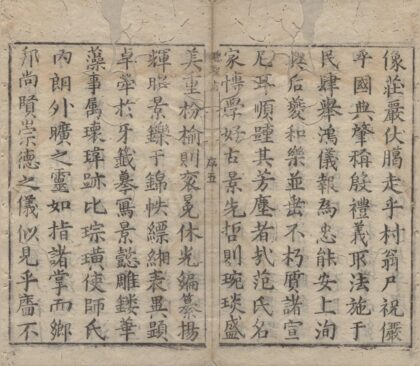 像莊嚴伏臈走乎村翁尸祝儼
乎國典肇稱殷禮義取法施于
民肆舉鴻儀報為忠能安上洵
與后夔和樂並出不朽質諸宣
尼耳順踵其芳塵者范氏名
家博學好古景先哲則琬琰盛
序五
美重枌榆則袞冕休光編纂揚
輝昭景鑠于錦帙縹緗裒異顯
卓犖於牙籤摹寫景懿雕鏤華
藻事屬瓌琦跡比琮璜使師氏
內朗外曠之靈如指諸掌而鄉
邦尚賢崇德之儀似見乎齋不